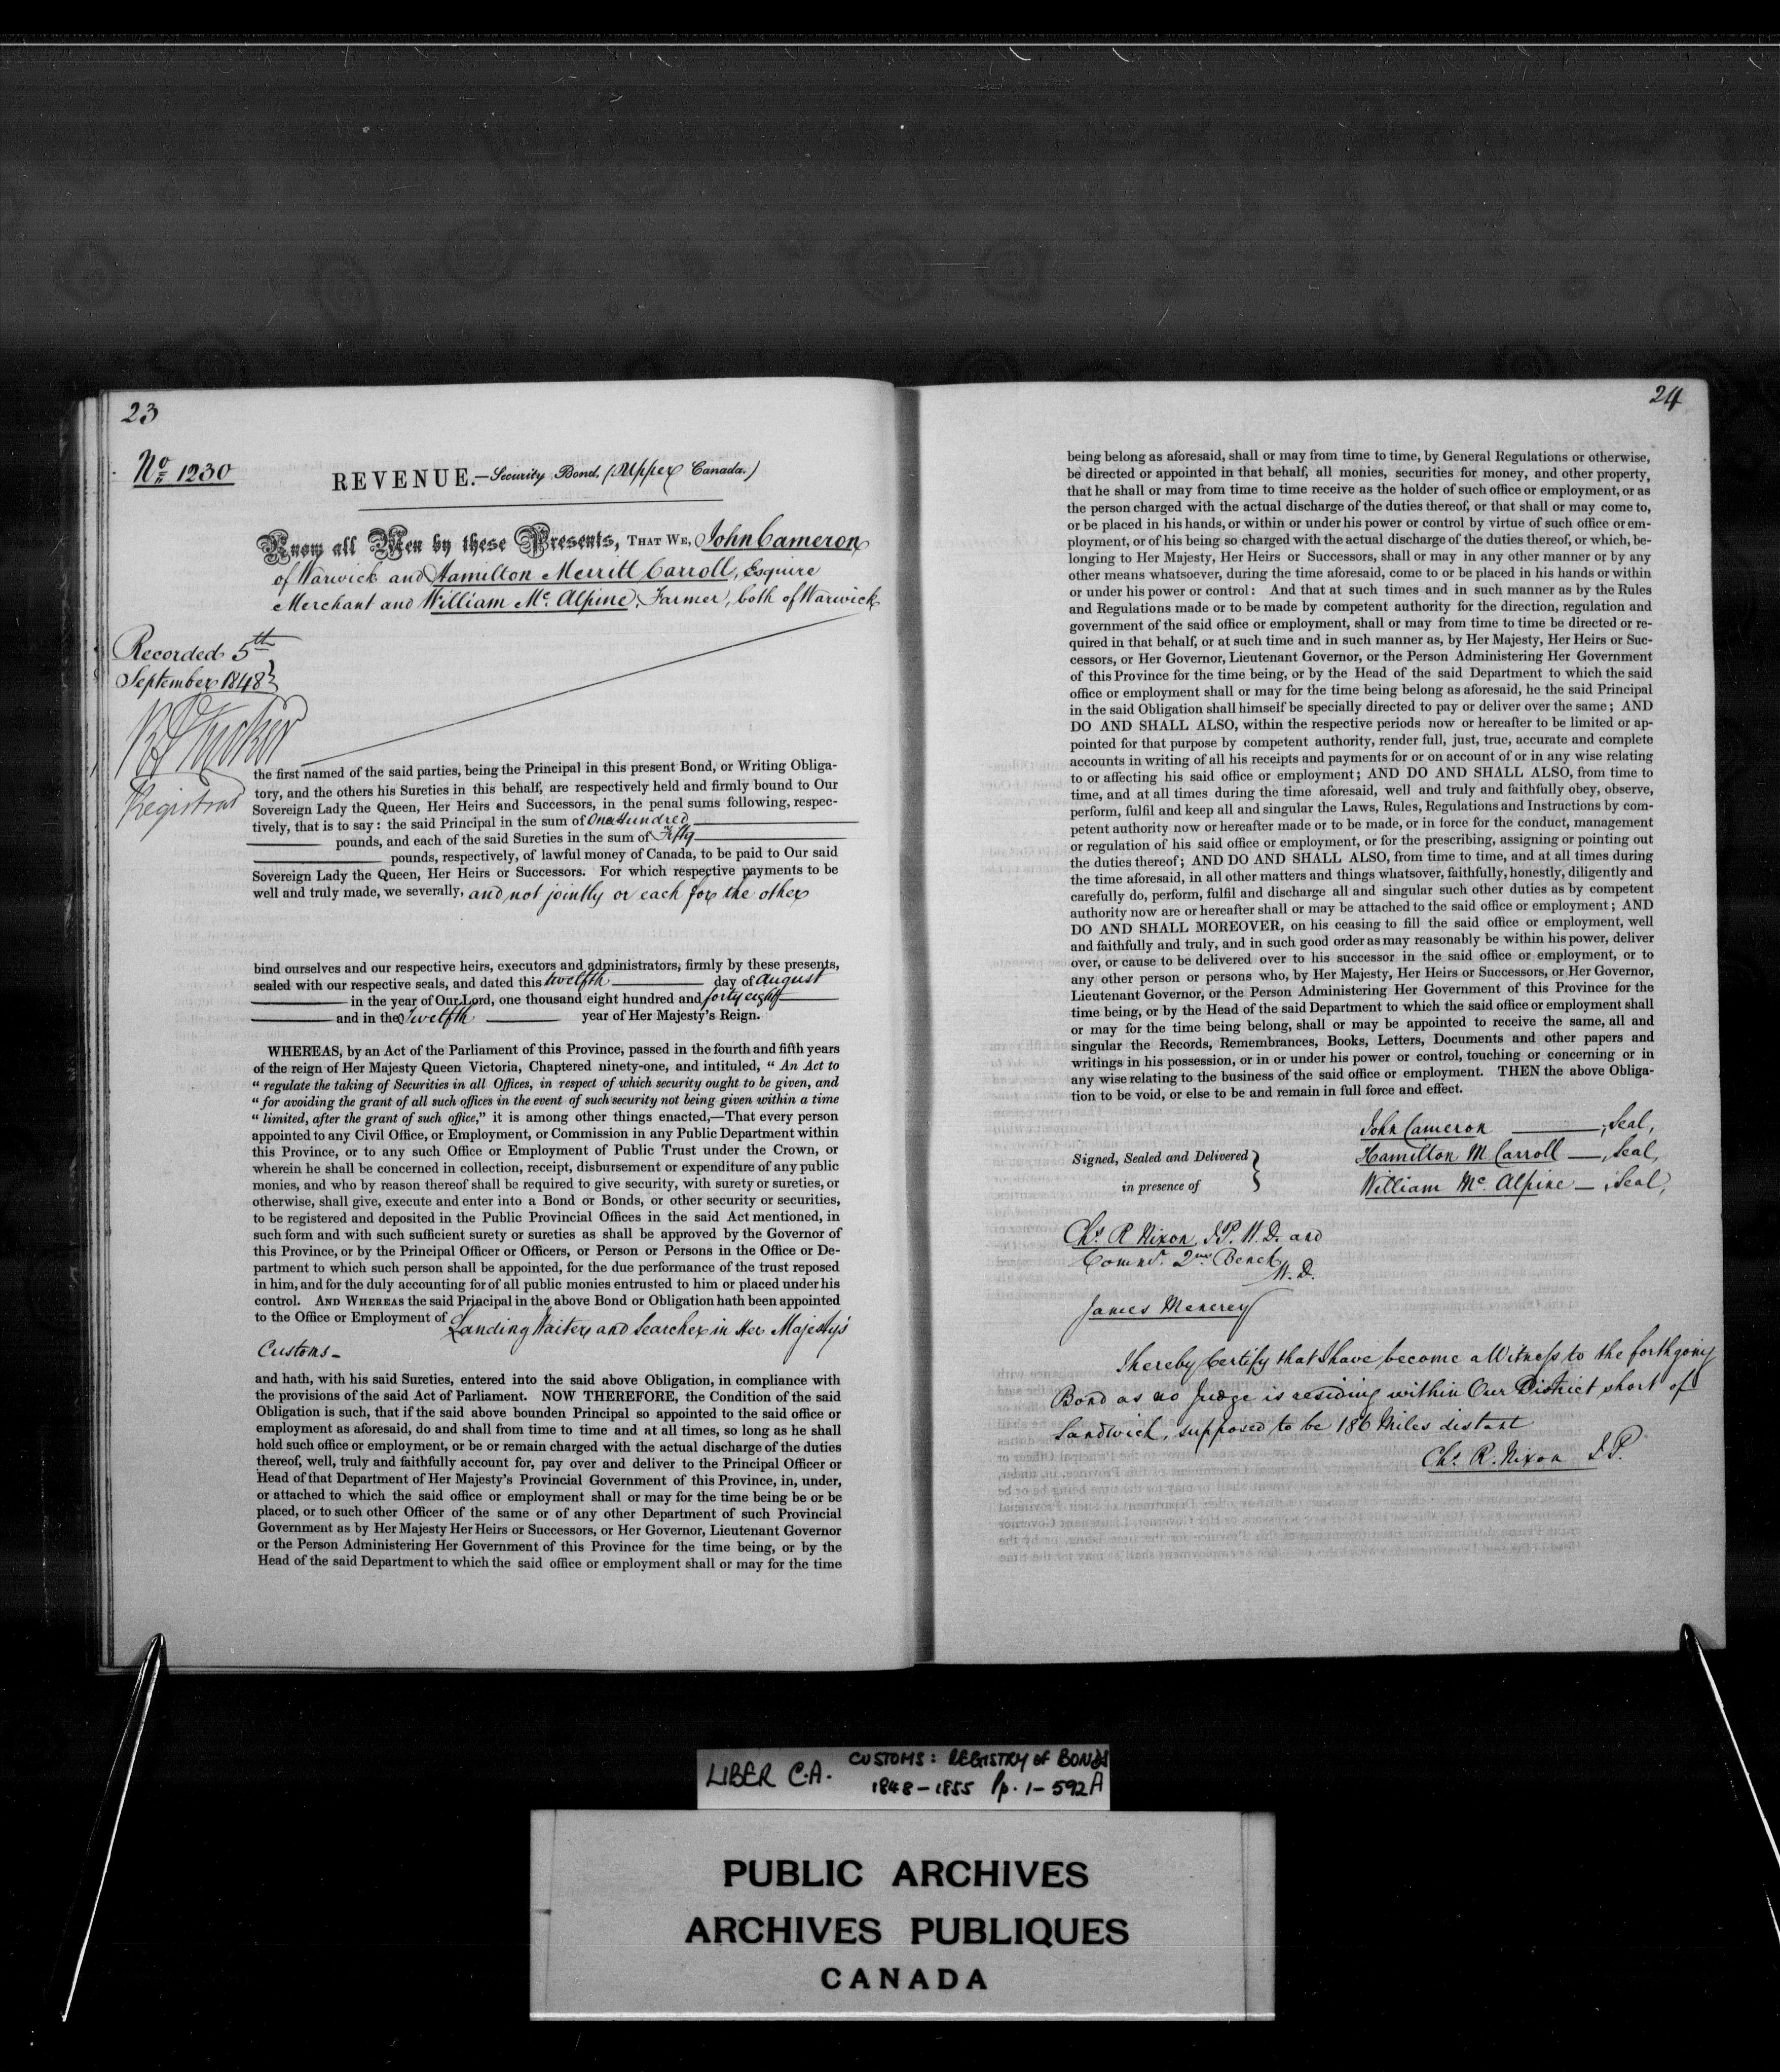 23
No 1230
REVENUE.—Security Bond. (Upper Canada.)
Know all Men by these Presents, THAT WE, John Cameron
of Warwick and Hamilton Merritt Carroll, Esquire
Merchant and William Mc. Alpine, Farmer, both of Warwick
Recorded 5th
September 1848
Registrar
the first named of the said parties, being the Principal in this present Bond, or Writing Obliga-
tory, and the others his Sureties in this behalf, are respectively held and firmly bound to Our
Sovereign Lady the Queen, Her Heirs and Successors, in the penal sums following, respec-
tively, that is to say: the said Principal in the sum of One Hundred
pounds, and each of the said Sureties in the sum of Fifty
pounds, respectively, of lawful money of Canada, to be paid to Our said
Sovereign Lady the Queen, Her Heirs or Successors. For which respective payments to be
well and truly made, we severally, and not jointly or each for the other
bind ourselves and our respective heirs, executors and administrators, firmly by these presents,
sealed with our respective seals, and dated this twelfth day of August
in the year of Our Lord, one thousand eight hundred and forty eight
and in the Twelfth year of Her Majesty's Reign.
WHEREAS, by an Act of the Parliament of this Province, passed in the fourth and fifth years
of the reign of Her Majesty Queen Victoria, Chaptered ninety-one, and intituled, “ An Act to
“ regulate the taking of Securities in all Offices, in respect of which security ought to be given, and
“ for avoiding the grant of all such offices in the event of such security not being given within a time
“ limited, after the grant of such office,” it is among other things enacted,—That every person
appointed to any Civil Office, or Employment, or Commission in any Public Department within
this Province, or to any such Office or Employment of Public Trust under the Crown, or
wherein he shall be concerned in collection, receipt, disbursement or expenditure of any public
monies, and who by reason thereof shall be required to give security, with surety or sureties, or
otherwise, shall give, execute and enter into a Bond or Bonds, or other security or securities,
to be registered and deposited in the Public Provincial Offices in the said Act mentioned, in
such form and with such sufficient surety or sureties as shall be approved by the Governor of
this Province, or by the Principal Officer or Officers, or Person or Persons in the Office or De-
partment to which such person shall be appointed, for the due performance of the trust reposed
in him, and for the duly accounting for of all public monies entrusted to him or placed under his
control. AND WHEREAS the said Principal in the above Bond or Obligation hath been appointed
to the Office or Employment of Landing Waiter and Searcher in Her Majesty's
Customs—
and hath, with his said Sureties, entered into the said above Obligation, in compliance with
the provisions of the said Act of Parliament. NOW THEREFORE, the Condition of the said
Obligation is such, that if the said above bounden Principal so appointed to the said office or
employment as aforesaid, do and shall from time to time and at all times, so long as he shall
hold such office or employment, or be or remain charged with the actual discharge of the duties
thereof, well, truly and faithfully account for, pay over and deliver to the Principal Officer or
Head of that Department of Her Majesty's Provincial Government of this Province, in, under,
or attached to which the said office or employment shall or may for the time being be or be
placed, or to such other Officer of the same or of any other Department of such Provincial
Government as by Her Majesty Her Heirs or Successors, or Her Governor, Lieutenant Governor
or the Person Administering Her Government of this Province for the time being, or by the
Head of the said Department to which the said office or employment shall or may for the time
24
being belong as aforesaid, shall or may from time to time, by General Regulations or otherwise,
be directed or appointed in that behalf, all monies, securities for money, and other property,
that he shall or may from time to time receive as the holder of such office or employment, or as
the person charged with the actual discharge of the duties thereof, or that shall or may come to,
or be placed in his hands, or within or under his power or control by virtue of such office or em-
ployment, or of his being so charged with the actual discharge of the duties thereof, or which, be-
longing to Her Majesty, Her Heirs or Successors, shall or may in any other manner or by any
other means whatsoever, during the time aforesaid, come to or be placed in his hands or within
or under his power or control: And that at such times and in such manner as by the Rules
and Regulations made or to be made by competent authority for the direction, regulation and
government of the said office or employment, shall or may from time to time be directed or re-
quired in that behalf, or at such time and in such manner as, by Her Majesty, Her Heirs or Suc-
cessors, or Her Governor, Lieutenant Governor, or the Person Administering Her Government
of this Province for the time being, or by the Head of the said Department to which the said
office or employment shall or may for the time being belong as aforesaid, he the said Principal
in the said Obligation shall himself be specially directed to pay or deliver over the same; AND
DO AND SHALL ALSO, within the respective periods now or hereafter to be limited or ap-
pointed for that purpose by competent authority, render full, just, true, accurate and complete
accounts in writing of all his receipts and payments for or on account of or in any wise relating
to or affecting his said office or employment; AND DO AND SHALL ALSO, from time to
time, and at all times during the time aforesaid, well and truly and faithfully obey, observe,
perform, fulfil and keep all and singular the Laws, Rules, Regulations and Instructions by com-
petent authority now or hereafter made or to be made, or in force for the conduct, management
or regulation of his said office or employment, or for the prescribing, assigning or pointing out
the duties thereof; AND DO AND SHALL ALSO, from time to time, and at all times during
the time aforesaid, in all other matters and things whatsover, faithfully, honestly, diligently and
carefully do, perform, fulfil and discharge all and singular such other duties as by competent
authority now are or hereafter shall or may be attached to the said office or employment; AND
DO AND SHALL MOREOVER, on his ceasing to fill the said office or employment, well
and faithfully and truly, and in such good order as may reasonably be within his power, deliver
over, or cause to be delivered over to his successor in the said office or employment, or to
any other person or persons who, by Her Majesty, Her Heirs or Successors, or Her Governor,
Lieutenant Governor, or the Person Administering Her Government of this Province for the
time being, or by the Head of the said Department to which the said office or employment shall
or may for the time being belong, shall or may be appointed to receive the same, all and
singular the Records, Remembrances, Books, Letters, Documents and other papers and
writings in his possession, or in or under his power or control, touching or concerning or in
any wise relating to the business of the said office or employment. THEN the above Obliga-
tion to be void, or else to be and remain in full force and effect.
John Cameron —, Seal,
Signed, Sealed and Delivered
Hamilton M Carroll —, Seal,
in presence of
William Mc. Alpine —, Seal,
Chs. R Nixon, J.P. W.D. and
Comnr. 2nd Bench
W.D.
James Menerey
I hereby Certify that I have become a Witness to the forthgoing
Bond as no Judge is residing within Our District short of
Sandwich, supposed to be 186 Miles distant
Chs. R. Nixon J.P.
LIBER C.A. CUSTOMS: REGISTRY OF BONDS
1848–1855 Pp. 1–592A
PUBLIC ARCHIVES
ARCHIVES PUBLIQUES
CANADA